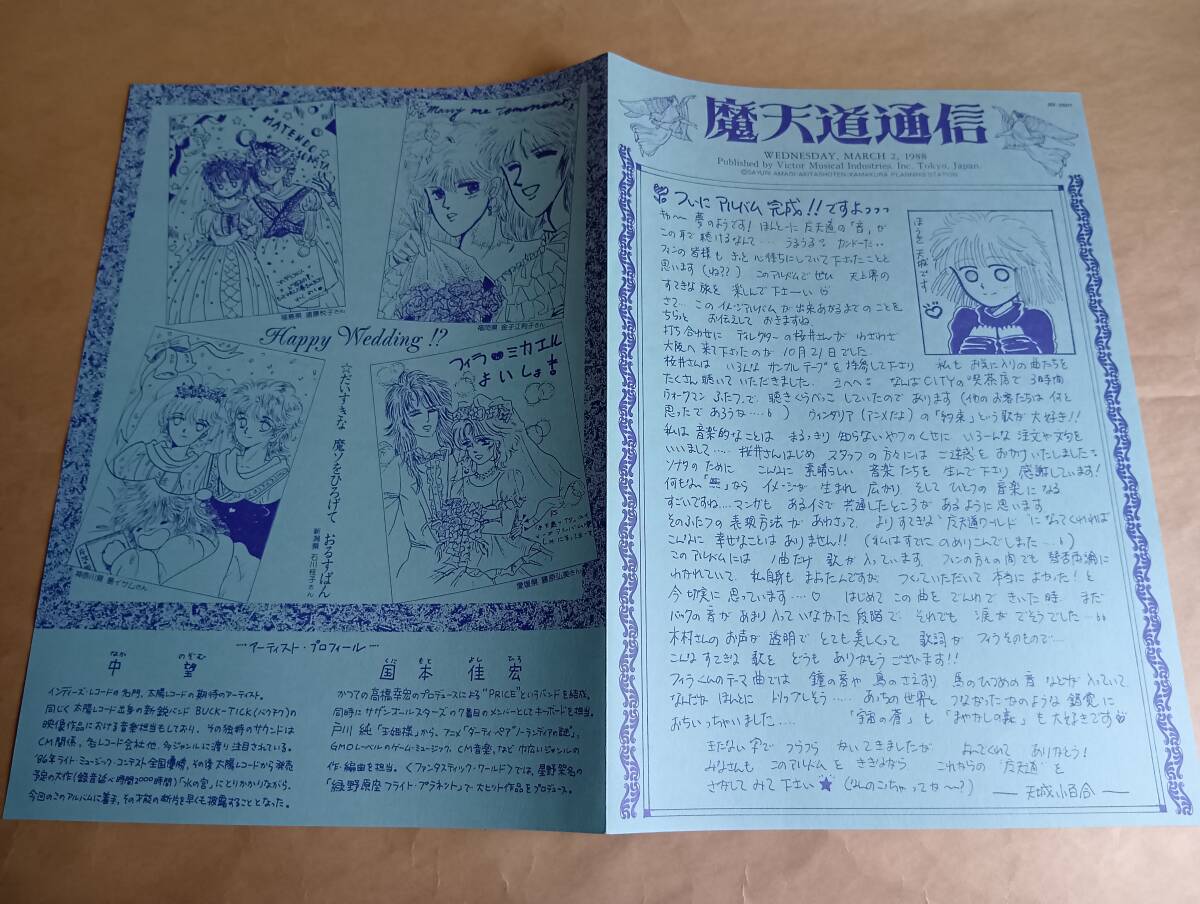 魔天道通信
WEDNESDAY, MARCH 2, 1988
Published by Victor Musical Industries, Inc. Tokyo, Japan.
©SAYURI AMAGI・AKITASHOTEN・KAMAKURA PLANNING STATION
ついに アルバム 完成!!ですよっっっ
キャ〜 夢のようです! ほんと〜に 「音」が
この耳で 聴けるなんて… うるうるっ カンドーだ..
ファンの皆様も きっと 心待ちにしていて下さったことと
思います(ね??) このアルバムで ぜひ 天上界の
すてきな旅を 楽しんで 下さーい
さて… この イメージアルバム が 出来あがるまで のことを
ちらっと お伝えして おきますね
打ち合わせに ディレクター の 桜井さんが わざわざ
大阪へ 来て下さったのが 10月21日でした.
桜井さんは いろんな サンプル テープを 持参して下さり 私も お気に入りの曲たちを
たくさん 聴いて いただきました. なんばCITYの 喫茶店で 3時間
ウォークマン ふたつで 聴きくらべっこ していたので あります (他のお客たちは 何と
思ったで あろうな…) ウィンダリア (アニメだよ) の「約束」という 歌が 大好き!!
私は 音楽的なことは まるっきり 知らないやつの くせに いろーんな 注文や
いいまして…. 桜井さんはじめ スタッフ の 方々には ご迷惑を おかけいたしました
ために こんなに 素晴らしい 音楽 たちを 生んで 下さり 感謝しています!
何もない「無」から イメージが 生まれ 広がり, そして ひとつの 音楽に なる
すごいですね… マンガも あるイミで 共通したところが あるように 思います
そのふたつの 表現方法が あわさって, よりすてきな ワールド になってくれれば
こんなに 幸せなことは ありません!! (私は すでに のめりこんでしました…)
このアルバムには 1曲だけ 歌が 入っています. ファンの方々の間でも 賛否両論に
わかれていて, 私自身も まよったんですが, つくっていただいて 本当に よかった! と
今 切実に 思っています…. はじめて この曲を でんわで きいた時, まだ
バックの音が あまり入っていなかった 段階で それでも 涙が でそうでした…
木村さんの お声が 透明で とても 美しくって 歌詞が フィラ そのもので…
こんなすてきな 歌を どうも ありがとう ございます!!
フィラくんの テーマ曲では 鐘の音や 鳥のさえずり, 馬のひづめの音 などが 入っていて,
なんだか ほんとに トリップしそう…. あっちの世界と つながった かのような 錯覚に
おちいっちゃいました…. 「宇宙の蒼」も「まやかしの森」も 大好きです
きたない字で フラフラ かいてきましたが よんでくれて ありがとう!
みなさんも このアルバム を ききながら これからの を
さがしてみて 下さい★
— 天城小百合 —
ほうを 天城 です。
MATENDO
Marry me Tomonori
福島県 遠藤悦子さん
福岡県 金子江利子さん
Happy Wedding!?
☆だいすきな 魔ノをひろげて おるすばん
新潟県 石川桂子さん
フィラ♥ミカエル
よいしょ!
神奈川県 暑イゲムさん
愛媛県 藤原弘美さん
アーティスト・プロフィール
なか のぞむ
中 望
インディーズ・レコードの名門、太陽レコードの期待のアーティスト。
同じく太陽レコード出身の新鋭バンドBUCK-TICK(バクチク)の
映像作品における音楽担当もしており、その独特のサウンドは
CM関係、各レコード会社他、多ジャンルに渡り注目されている。
'86年ライト・ミュージック・コンテスト全国優勝、その後太陽レコードから発売
予定の大作(録音延べ時間2000時間)「氷の宮」にとりかかりながら、
今回このアルバムに着手、その才能の断片を早くも披露することとなった。
くに もと よし ひろ
国本佳宏
かつての高橋幸宏のプロデュースによる"PRICE"というバンドを結成。
同時にサザンオールスターズの7番目のメンバーとしてキーボードを担当。
戸川 純「玉姫様」から、アニメ「ダーティペア」「ノーランディアの謎」、
GMOレーベルのゲーム・ミュージック、CM音楽、など巾広いジャンルの
作・編曲を担当。〈ファンタスティック・ワールド〉では、星野架名の
「緑野原座フライト・プラネット」で大ヒット作品をプロデュース。